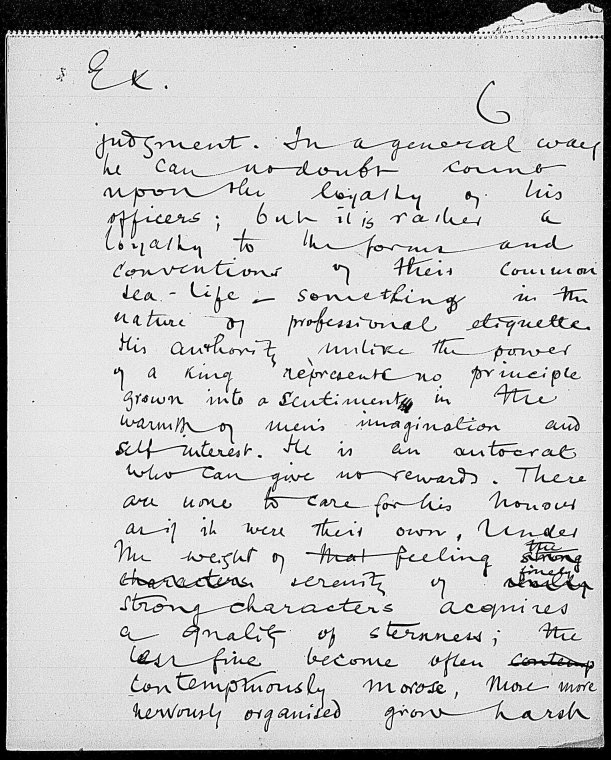 Ex.
6
judgment. In a general way
he can no doubt count
upon the loyalty of his
officers; but it is rather a
loyalty to the forms and
conventions of their common
sea-life — something in the
nature of professional etiquette.
His authority unlike the power
of a king represents no principle
grown into a sentiment in the
warmth of men's imagination and
self interest. He is an autocrat
who can give no rewards. There
are none to care for his honour
as if it were their own. Under
the weight of that feeling the strong
characters serenity of finely
strong characters acquires
a quality of sternness; the
less fine become often contemp
contemptuously morose, those more
nervously organised grow harsh